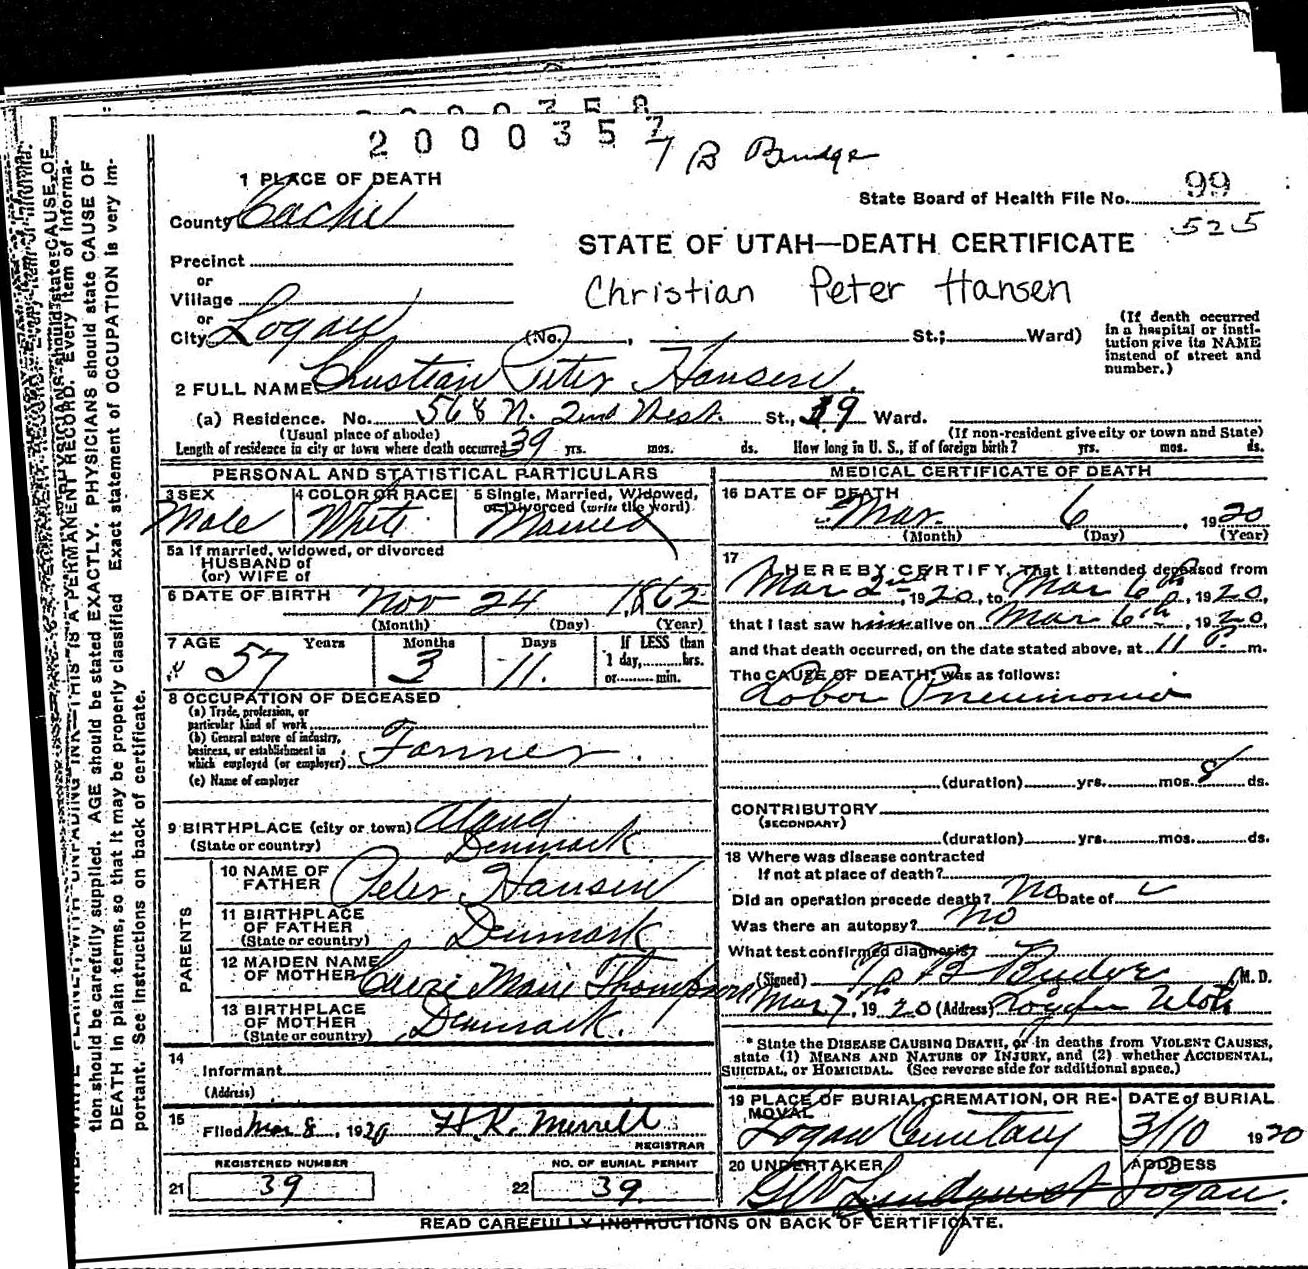 2000358
2000357
T B Budge
1 PLACE OF DEATH
State Board of Health File No. 99
525
County Cache
STATE OF UTAH—DEATH CERTIFICATE
Precinct
Christian Peter Hansen
or
Village
or
City Logan (No. , St.; Ward)
(If death occurred in a hospital or institution give its NAME instead of street and number.)
2 FULL NAME Christian Peter Hansen
(a) Residence. No. 568 N. 2nd West. St., 19 Ward.
(Usual place of abode) (If non-resident give city or town and State)
Length of residence in city or town where death occurred 39 yrs. mos. ds. How long in U. S., if of foreign birth? yrs. mos. ds.
PERSONAL AND STATISTICAL PARTICULARS
3 SEX Male
4 COLOR OR RACE White
5 Single, Married, Widowed, or Divorced (write the word) Married
5a If married, widowed, or divorced
HUSBAND of
(or) WIFE of
6 DATE OF BIRTH Nov 24 1862
(Month) (Day) (Year)
7 AGE 57 Years 3 Months 11 Days
If LESS than
1 day, hrs.
or min.
8 OCCUPATION OF DECEASED
(a) Trade, profession, or
particular kind of work
(b) General nature of industry,
business, or establishment in
which employed (or employer) Farmer
(c) Name of employer
9 BIRTHPLACE (city or town)
(State or country) Denmark
PARENTS
10 NAME OF FATHER Peter Hansen
11 BIRTHPLACE OF FATHER (State or country) Denmark
12 MAIDEN NAME OF MOTHER Marie Thompson
13 BIRTHPLACE OF MOTHER (State or country) Denmark.
14
Informant
(Address)
15
Filed Mar 8, 1920 H.K. Merrell
REGISTRAR
REGISTERED NUMBER
21 39
NO. OF BURIAL PERMIT
22 39
MEDICAL CERTIFICATE OF DEATH
16 DATE OF DEATH
Mar. 6, 1920
(Month) (Day) (Year)
17 I HEREBY CERTIFY, That I attended deceased from
Mar 2nd, 1920, to Mar 6th, 1920,
that I last saw him alive on Mar 6th, 1920,
and that death occurred, on the date stated above, at 11 P. m.
The CAUSE OF DEATH* was as follows:
Lobar Pneumonia
(duration) yrs. mos. 8 ds.
CONTRIBUTORY
(SECONDARY)
(duration) yrs. mos. ds.
18 Where was disease contracted
If not at place of death?
Did an operation precede death? No Date of
Was there an autopsy? No
What test confirmed diagnosis?
(Signed) T B Budge, M. D.
Mar 7, 1920 (Address) Logan Utah
* State the DISEASE CAUSING DEATH, or in deaths from VIOLENT CAUSES,
state (1) MEANS AND NATURE OF INJURY, and (2) whether ACCIDENTAL,
SUICIDAL, or HOMICIDAL. (See reverse side for additional space.)
19 PLACE OF BURIAL, CREMATION, OR REMOVAL
Logan Cemetary
DATE of BURIAL
3/10 1920
20 UNDERTAKER
GW Lindquist
ADDRESS
Logan.
READ CAREFULLY INSTRUCTIONS ON BACK OF CERTIFICATE.
THIS IS A PERMANENT RECORD. Every item of information
tion should be carefully supplied. AGE should be stated EXACTLY. PHYSICIANS should state CAUSE OF
DEATH in plain terms, so that it may be properly classified. Exact statement of OCCUPATION is very im-
portant. See instructions on back of certificate.